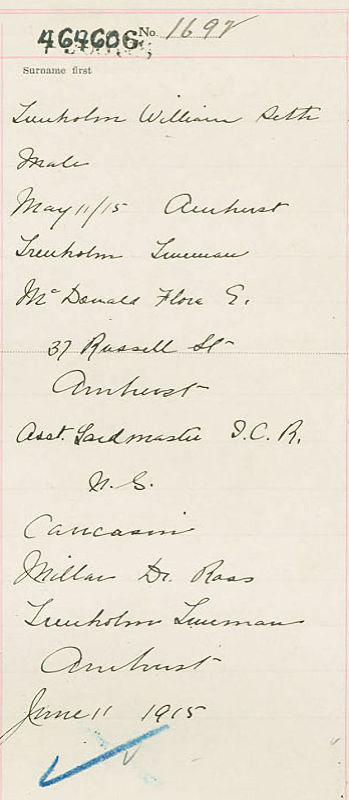 464606 No. 1692
Surname first
Trenholm William Seth
Male
May 11/15 Amherst
Trenholm Trueman
McDonald Flora E.
37 Russell St
Amherst
Asst. Yardmaster I.C.R.
N.S.
Caucasian
Millar Dr. Ross
Trenholm Trueman
Amherst
June 11 1915